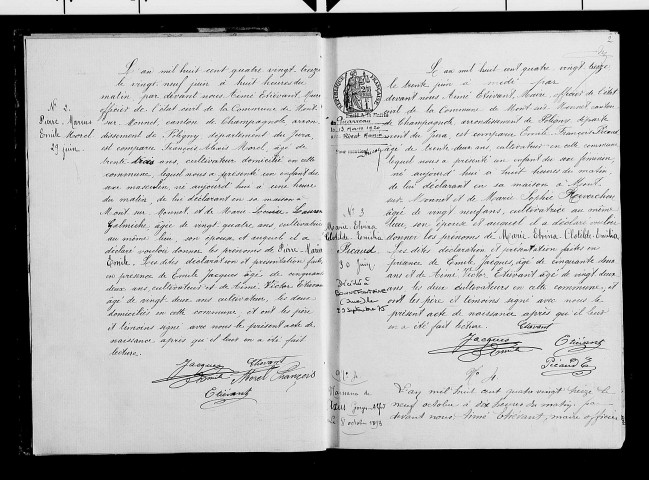 L'an mil huit cent quatre vingt treize
le vingt neuf juin à huit heures du
matin par devant nous Aimé Etievant Maire
officier de l'état civil de la Commune de Mont
sur Monnet, canton de Champagnole, arron-
dissement de Poligny département du Jura,
est comparu François Alexis Morel, âgé de
trente trois ans, cultivateur domicilié en cette
commune, lequel nous a présenté un enfant du
sexe masculin, né aujourd'hui à une heure
du matin, de lui déclarant en sa maison à
Mont sur Monnet, et de Marie Louise Laurence
Galmiche, âgée de vingt quatre ans, cultivatrice
au même lieu, son épouse et auquel il a
déclaré vouloir donner les prénoms de Pierre Marius
Emile. Les dites déclaration et présentation faites
en présence de Emile Jacques âgé de cinquante
deux ans, cultivateur et de Aimé Victor Etievant
âgé de vingt deux ans cultivateur, les deux
domiciliés en cette commune, et ont les père
et témoins signé avec nous le présent acte de
naissance après qu'il leur en a été fait
lecture.
Jacques Emile
Etievant
Morel François
Etievant
N° 2.
Pierre Marius
Emile Morel
29 juin
2
L'an mil huit cent quatre vingt treize
le trente juin à midi par
devant nous Aimé Etievant, Maire, officier de l'état
civil de la Commune de Mont sur Monnet canton
de Champagnole, arrondissement de Poligny département
du Jura, est comparu Emile François Picaud
âgé de trente deux ans, cultivateur en cette commune
lequel nous a présenté un enfant du sexe féminin,
né aujourd'hui à huit heures du matin,
de lui déclarant en sa maison à Mont
sur Monnet et de Marie Sophie
âgée de vingt neuf ans, cultivatrice au même
lieu, son épouse et auquel il a déclaré vouloir
donner les prénoms de Marie Elvina Clotilde Emilia
Les dites déclaration et présentation faites en
présence de Emile Jacques, âgé de cinquante deux
ans et de Aimé Victor Etievant âgé de vingt deux
ans les deux cultivateurs en cette commune, et
ont les père et témoins signé avec nous le
présent acte de naissance après qu'il leur
en a été fait lecture.
Etievant
Jacques Emile
Etievant
Picaud E
N° 3
Marie Elvina
Clotilde Emilia
Picaud
30 juin
Décédée à
(Jura) le
N° 4
N° 4
L'an mil huit cent quatre vingt treize le
neuf octobre à dix heures du matin, par
devant nous Aimé Etievant, maire, officier
octobre 1893